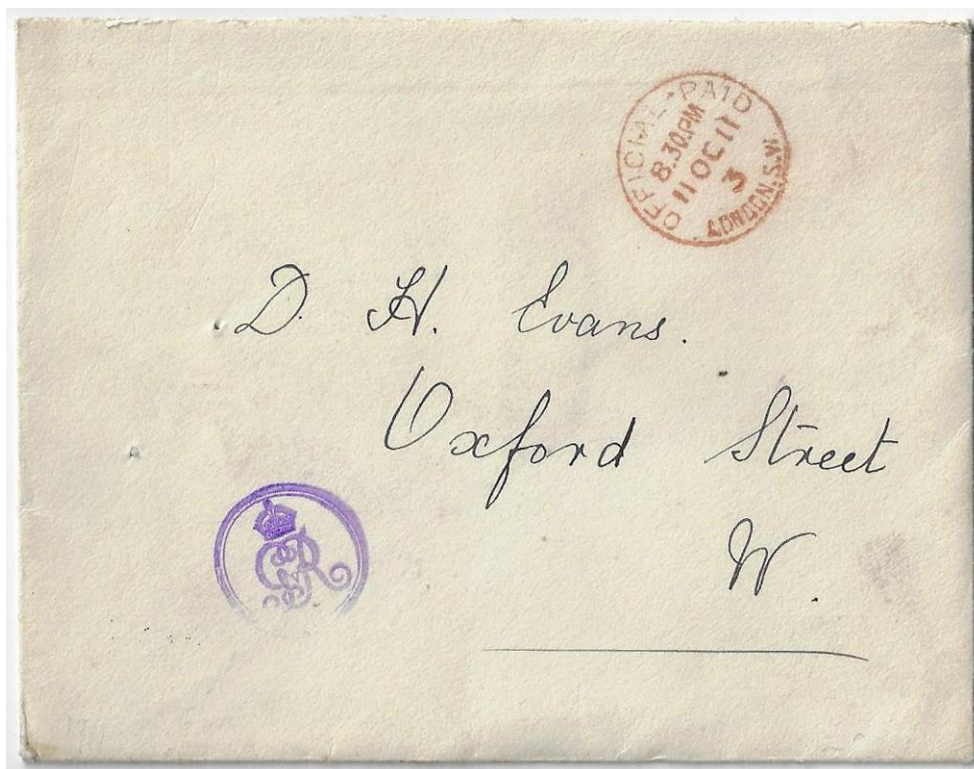 OFFICIAL PAID
8.30.PM
11 OC 11
3
LONDON.S.W.
D. H. Evans.
Oxford Street
W.
GR